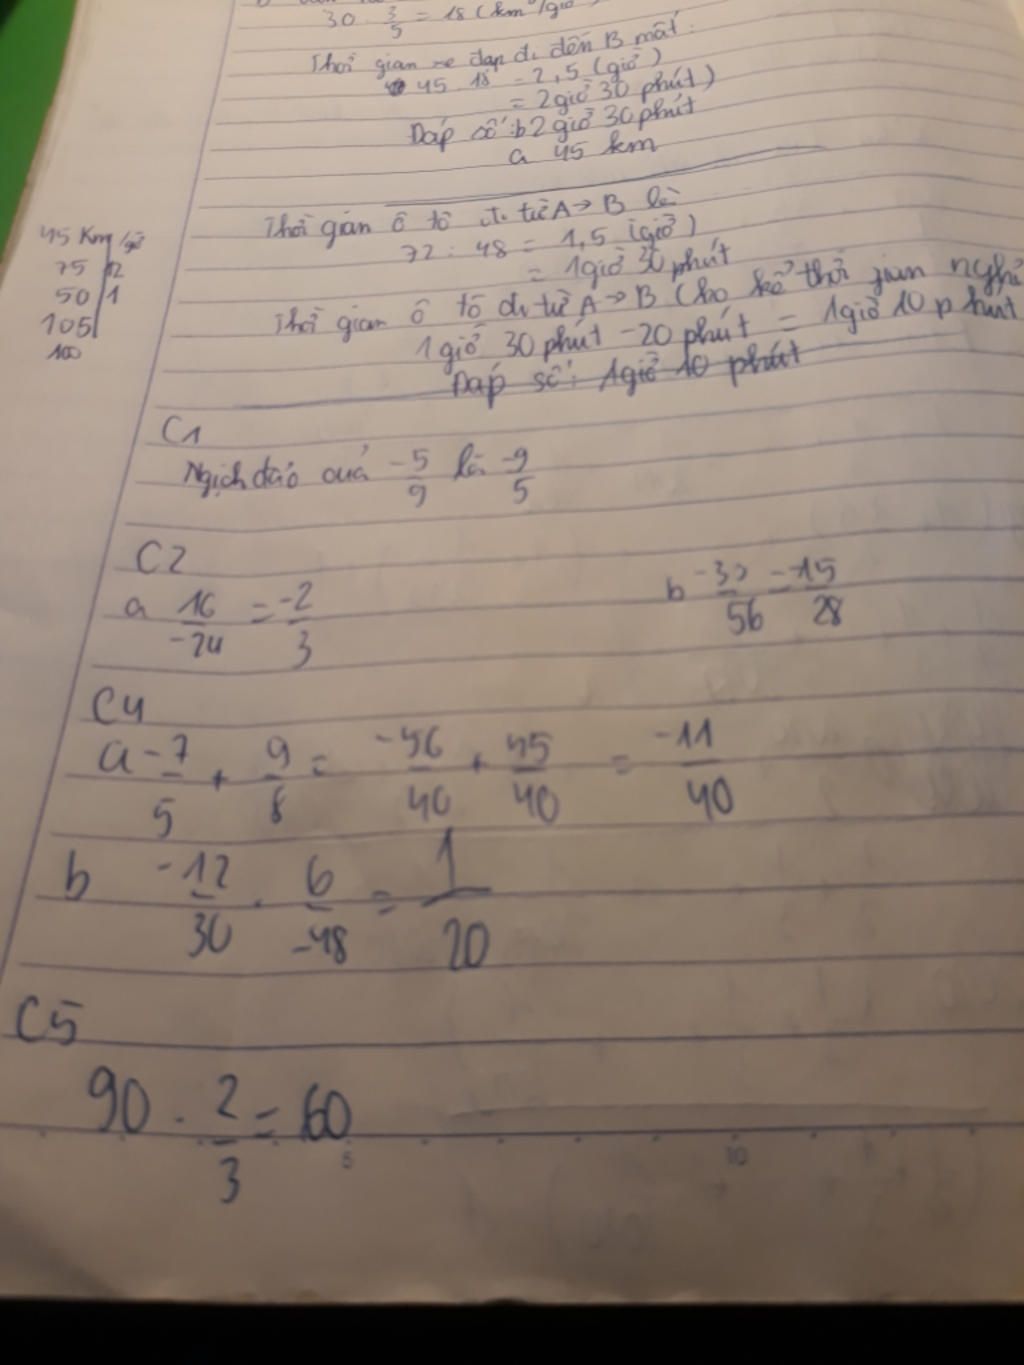 30 . 3/5 = 18 (km/giờ)
Thời gian xe đạp đi đến B mất:
45 : 18 = 2,5 (giờ)
= 2 giờ 30 phút)
Đáp số: b 2 giờ 30 phút
a 45 km
45 Km/giờ
75 | 2
50 | 1
105 |
100
Thời gian ô tô đi từ A → B là
72 : 48 = 1,5 (giờ)
= 1 giờ 30 phút
Thời gian ô tô đi từ A → B (ko kể thời gian nghỉ
1 giờ 30 phút - 20 phút = 1 giờ 10 phút
Đáp số: 1 giờ 10 phút
C1
Nghịch đảo của -5/9 là -9/5
C2
a 16/-24 = -2/3 b -30/56 = -15/28
C4
a -7/5 + 9/8 = -56/40 + 45/40 = -11/40
b -12/30 . 6/-48 = 1/20
C5
90 . 2/3 = 60
5 10